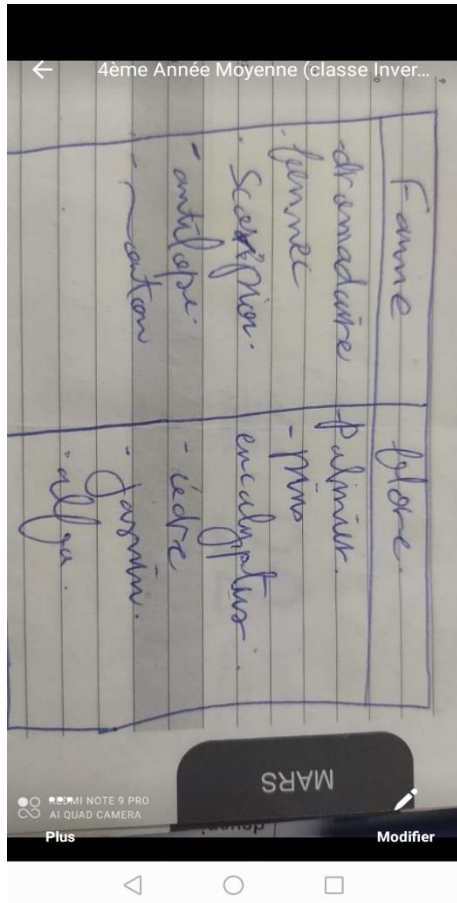 4ème Année Moyenne (classe Inver...
Faune
flore.
-dromadaire
Palmier.
- fennec
- Pins
. Scorpion.
eucalyptus.
- antilope.
- cèdre
- Jasmin.
- alfa.
MARS
REDMI NOTE 9 PRO
AI QUAD CAMERA
Plus
Modifier